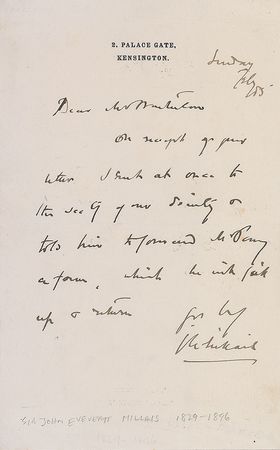 2. PALACE GATE,
KENSINGTON.
Sunday
Feby
85
Dear Mr
On receipt of your
letter I sent at once to
the secty of our Society &
told him to forward Mr
a form, which he will fill
up & return
yrs truly
J E Millais
SIR JOHN EVERETT MILLAIS 1829-1896